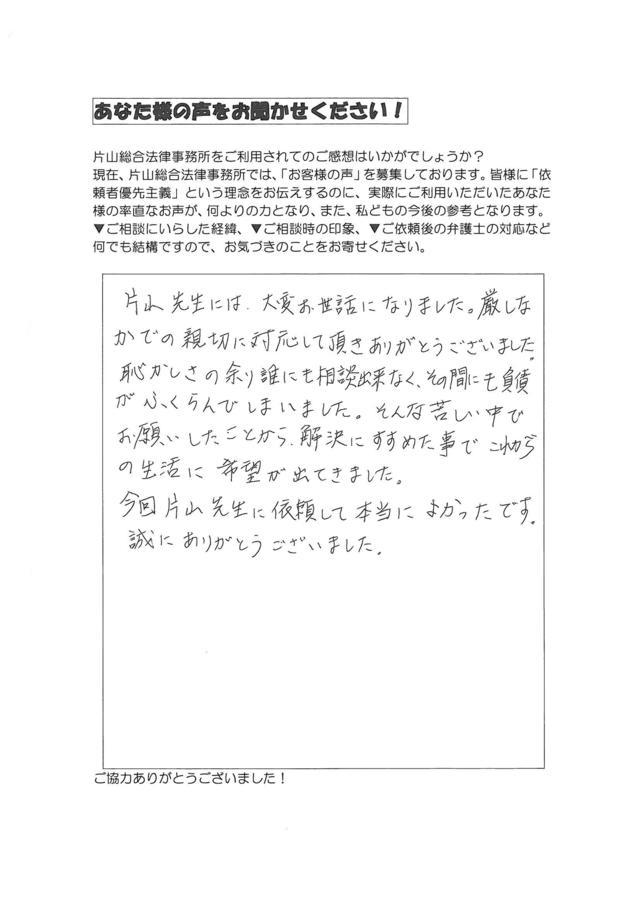 あなた様の声をお聞かせください！
片山総合法律事務所をご利用されてのご感想はいかがでしょうか？
現在、片山総合法律事務所では、「お客様の声」を募集しております。皆様に「依
頼者優先主義」という理念をお伝えするのに、実際にご利用いただいたあなた
様の率直なお声が、何よりの力となり、また、私どもの今後の参考となります。
▼ご相談にいらした経緯、▼ご相談時の印象、▼ご依頼後の弁護士の対応など
何でも結構ですので、お気づきのことをお寄せください。
片山先生には、大変お世話になりました。厳しな
かでの親切に対応して頂きありがとうございました。
恥かしさの余り誰にも相談出来なく、その間にも負債
がふくらんでしまいました。そんな苦しい中で
お願いしたことから、解決にすすめた事でこれから
の生活に希望が出てきました。
今回片山先生に依頼して本当によかったです。
誠にありがとうございました。
ご協力ありがとうございました！